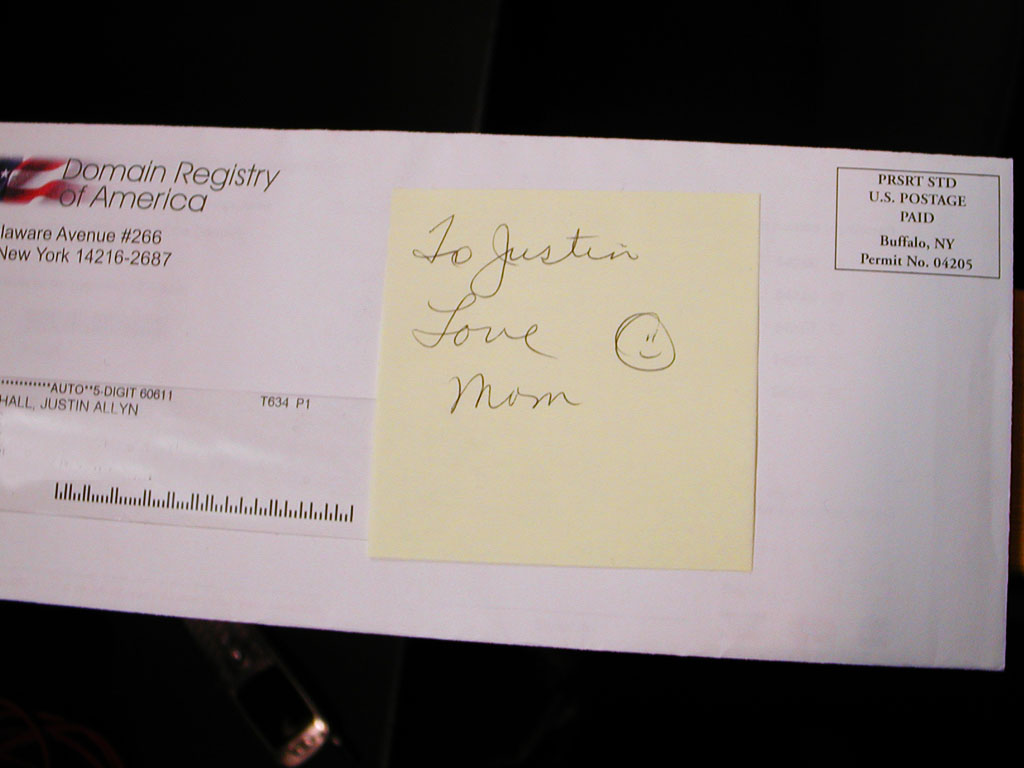 Domain Registry
of America
laware Avenue #266
New York 14216-2687
PRSRT STD
U.S. POSTAGE
PAID
Buffalo, NY
Permit No. 04205
To Justin
Love
Mom
***********AUTO**5-DIGIT 60611
HALL, JUSTIN ALLYN
T634 P1